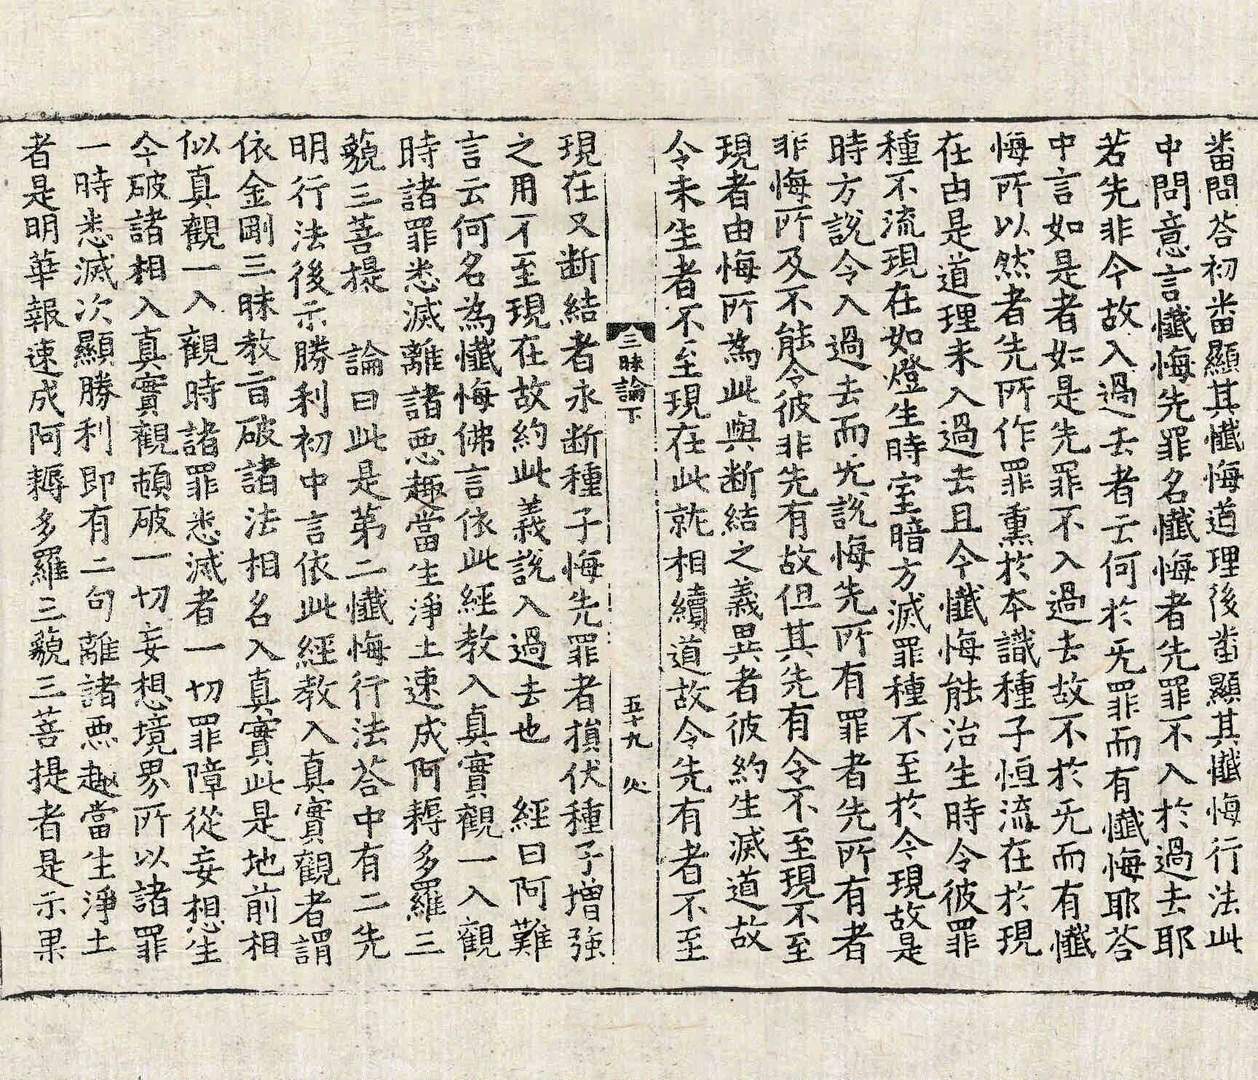 番問荅初番顯其懺悔道理後番顯其懺悔行法此
中問意言懺悔先罪名懺悔者先罪不入於過去耶
若先非今故入過去者云何於旡罪而有懺悔耶荅
中言如是者如是先罪不入過去故不於旡而有懺
悔所以然者先所作罪熏於本識種子恒流在於現
在古是道理未入過去且今懺悔能治生時令彼罪
種不流現在如燈生時室暗方滅罪種不至於今現故是
時方說令入過去而旡說悔先所有罪者先所有者
非悔所及不能令彼非先有故但其先有令不至現不至
現者由悔所為此與斷結之義異者彼約生滅道故
令未生者不至現在此就相續道故令先有者不至
三昧論下
五十九
現在又断結者永断種子悔先罪者損伏種子增強
之用不至現在故約此義說入過去也 經曰阿難
言云何名為懺悔佛言依此經教入真實觀一入觀
時諸罪悉滅離諸惡趣當生淨土速成阿耨多羅三
藐三菩提 論曰此是第二懺悔行法荅中有二先
明行法後示勝利初中言依此經教入真實觀者謂
依金剛三昧教旨破諸法相名入真實此是地前相
似真觀一入觀時諸罪悉滅者一切罪障從妄想生
今破諸相入真實觀頓破一切妄想境界所以諸罪
一時悉滅次顯勝利即有二句離諸惡趣當生淨土
者是明華報速成阿耨多羅三藐三菩提者是示果